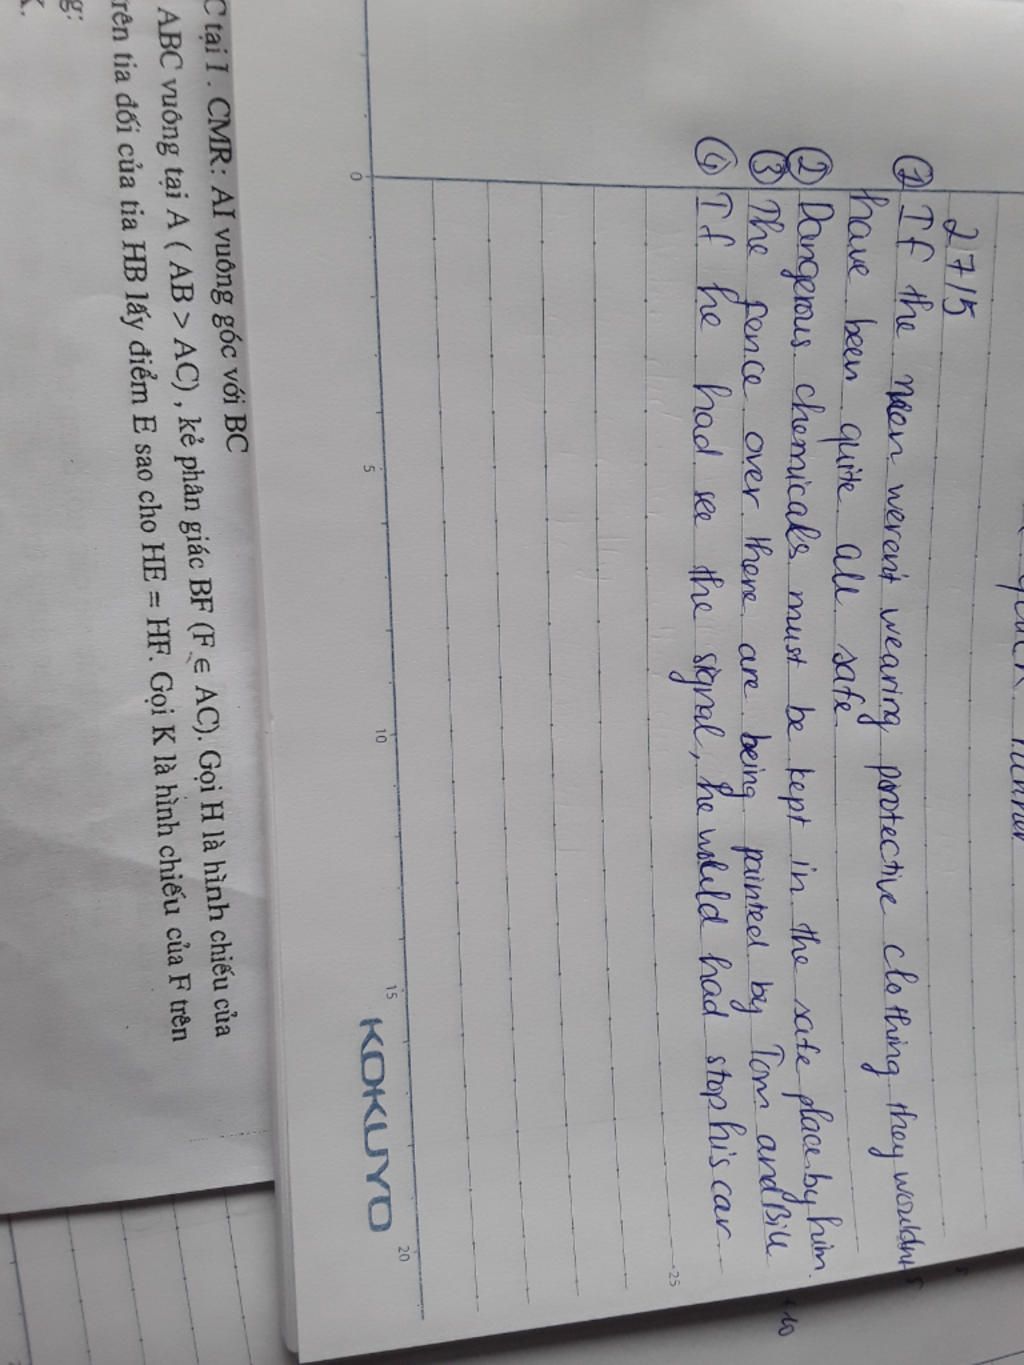 27/5
① If the men werent wearing protective clothing they wouldnt
have been quite all safe
② Dangerous chemicals must be kept in the safe place by him.
③ The fence over there are being painted by Tom and Bill
④ If he had see the signal, he would had stop his car
0 5 10 15 20
25
KOKUYO
C tại I . CMR: AI vuông góc với BC
ABC vuông tại A ( AB > AC) , kẻ phân giác BF (F ∈ AC). Gọi H là hình chiếu của
rên tia đối của tia HB lấy điểm E sao cho HE = HF. Gọi K là hình chiếu của F trên
g: